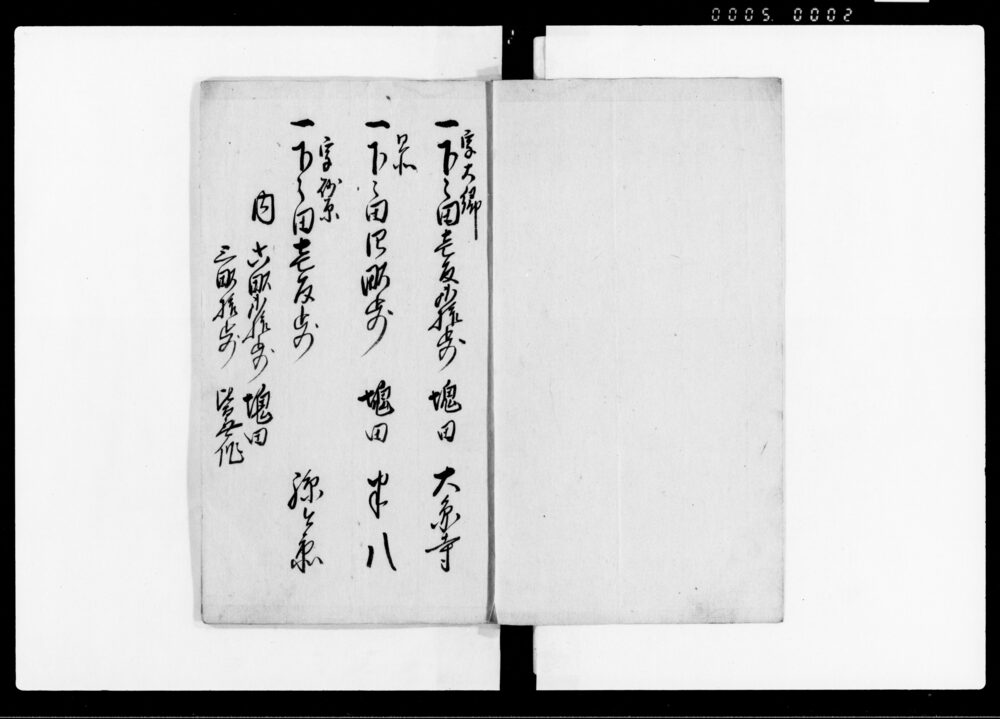 0005. 0002
字大縄
一下々田壱反弐拾歩 塊田 大泉寺
同所
一下々田四畝歩 塊田 半八
字砂原
一下々田壱反歩
内 六畝弐拾歩 塊田
三畝拾歩 皆無作